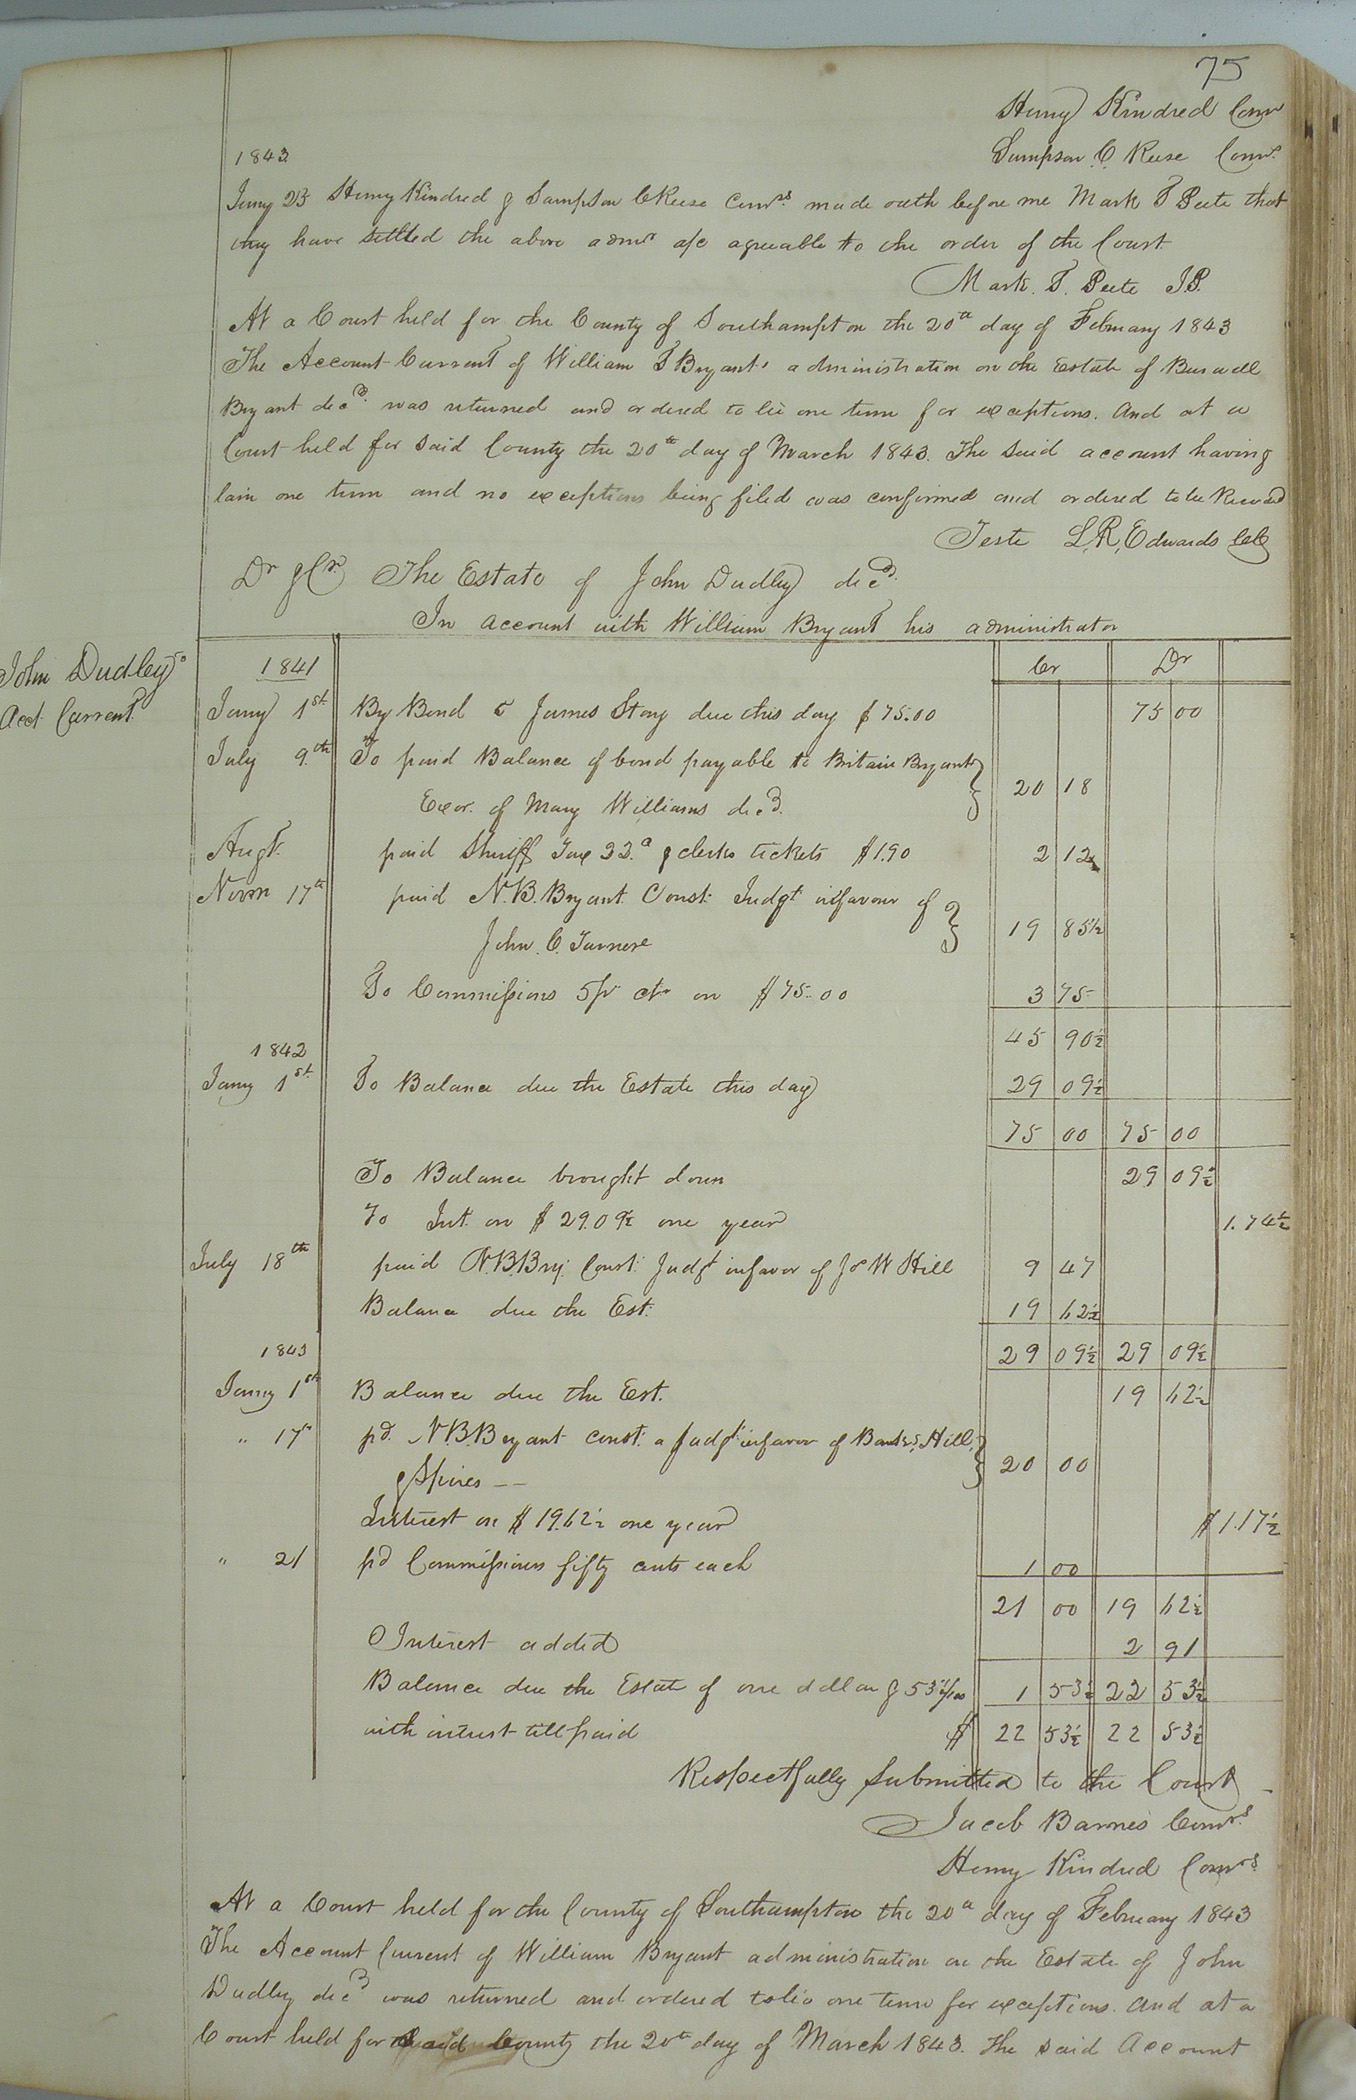 75
Henry Kindred Comr
Sampson C Reese Comr.
1843
Jany 23 Henry Kindred & Sampson C Reese Comrs. made oath before me Mark T Peete that
they have settled the above admr a/c agreeable to the order of the Court
Mark. T. Peete J.P.
At a Court held for the County of Southampton the 20th day of February 1843
The Account Current of William T Bryant's administration on the Estate of Burwell
Bryant decd. was returned and ordered to lie one term for exceptions. And at a
Court held for said County the 20th day of March 1843. The said account having
lain one term and no exceptions being filed was confirmed and ordered to be Record
Teste L,R, Edwards
Dr & Cr The Estate of John Dudley decd.
In account with William Bryant his administrator
John Dudley's 1841 Cr Dr
Acct Current
Jany 1st By Bond James Story due this day $75.00 75 00
July 9.th To paid Balance of bond payable to Britain Bryant }
Exor. of Mary Williams decd. 20 18
Augt. paid Sheriff Tax 22.c & clerks tickets $1.90 2 12
Novm 17th paid N.B. Bryant Const. Judgt infavour of }
John. C. Turnore 19 85½
To Commissions 5 pr ct. on $75.00 3 75
45 90½
1842
Jany 1st. To Balance due the Estate this day 29 09½
75 00 75 00
To Balance brought down 29 09½
To Int. on $29.09½ one year 1.74½
July 18th paid N.B. Bry. Const: Judgt infavor of Jos W Hill 9 47
Balance due the Est: 19 62½
1843 29 09½ 29 09½
Jany 1st Balance due the Est. 19 62½
" 17th pd. N.B. Bryant const. a Judgt infavor of Hill, }
& Spires -- 20 00
Interest on $19.62½ one year $1.17½
" 21 pd Commissions fifty cents each 1 00
21 00 19 62½
Interest added 2 91
Balance due the Estate of one dollar & 53½/100 1 53½ 22 53½
with interest till paid $ 22 53½ 22 53½
Respectfully Submitted to the Court
Jacob Barnes Comrs.
Henry Kindred Comrs.
At a Court held for the County of Southampton the 20th day of February 1843
The Account Current of William Bryant administration on the Estate of John
Dudley decd was returned and ordered to lie one term for exceptions. And at a
Court held for said County the 20th day of March 1843. The said Account